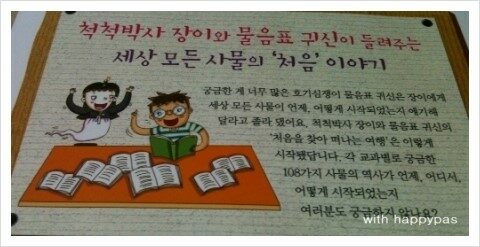 척척박사 장이와 물음표 귀신이 들려주는
세상 모든 사물의 '처음' 이야기
궁금한 게 너무 많은 호기심쟁이 물음표 귀신은 장이에게
세상 모든 사물이 언제, 어떻게 시작되었는지 얘기해
달라고 졸라 댔어요. 척척박사 장이와 물음표 귀신의
'처음을 찾아 떠나는 여행'은 이렇게
시작됐답니다. 각 교과별로 궁금한
108가지 사물의 역사가 언제, 어디서,
어떻게 시작되었는지
여러분도 궁금하지 않나요?
with happypas